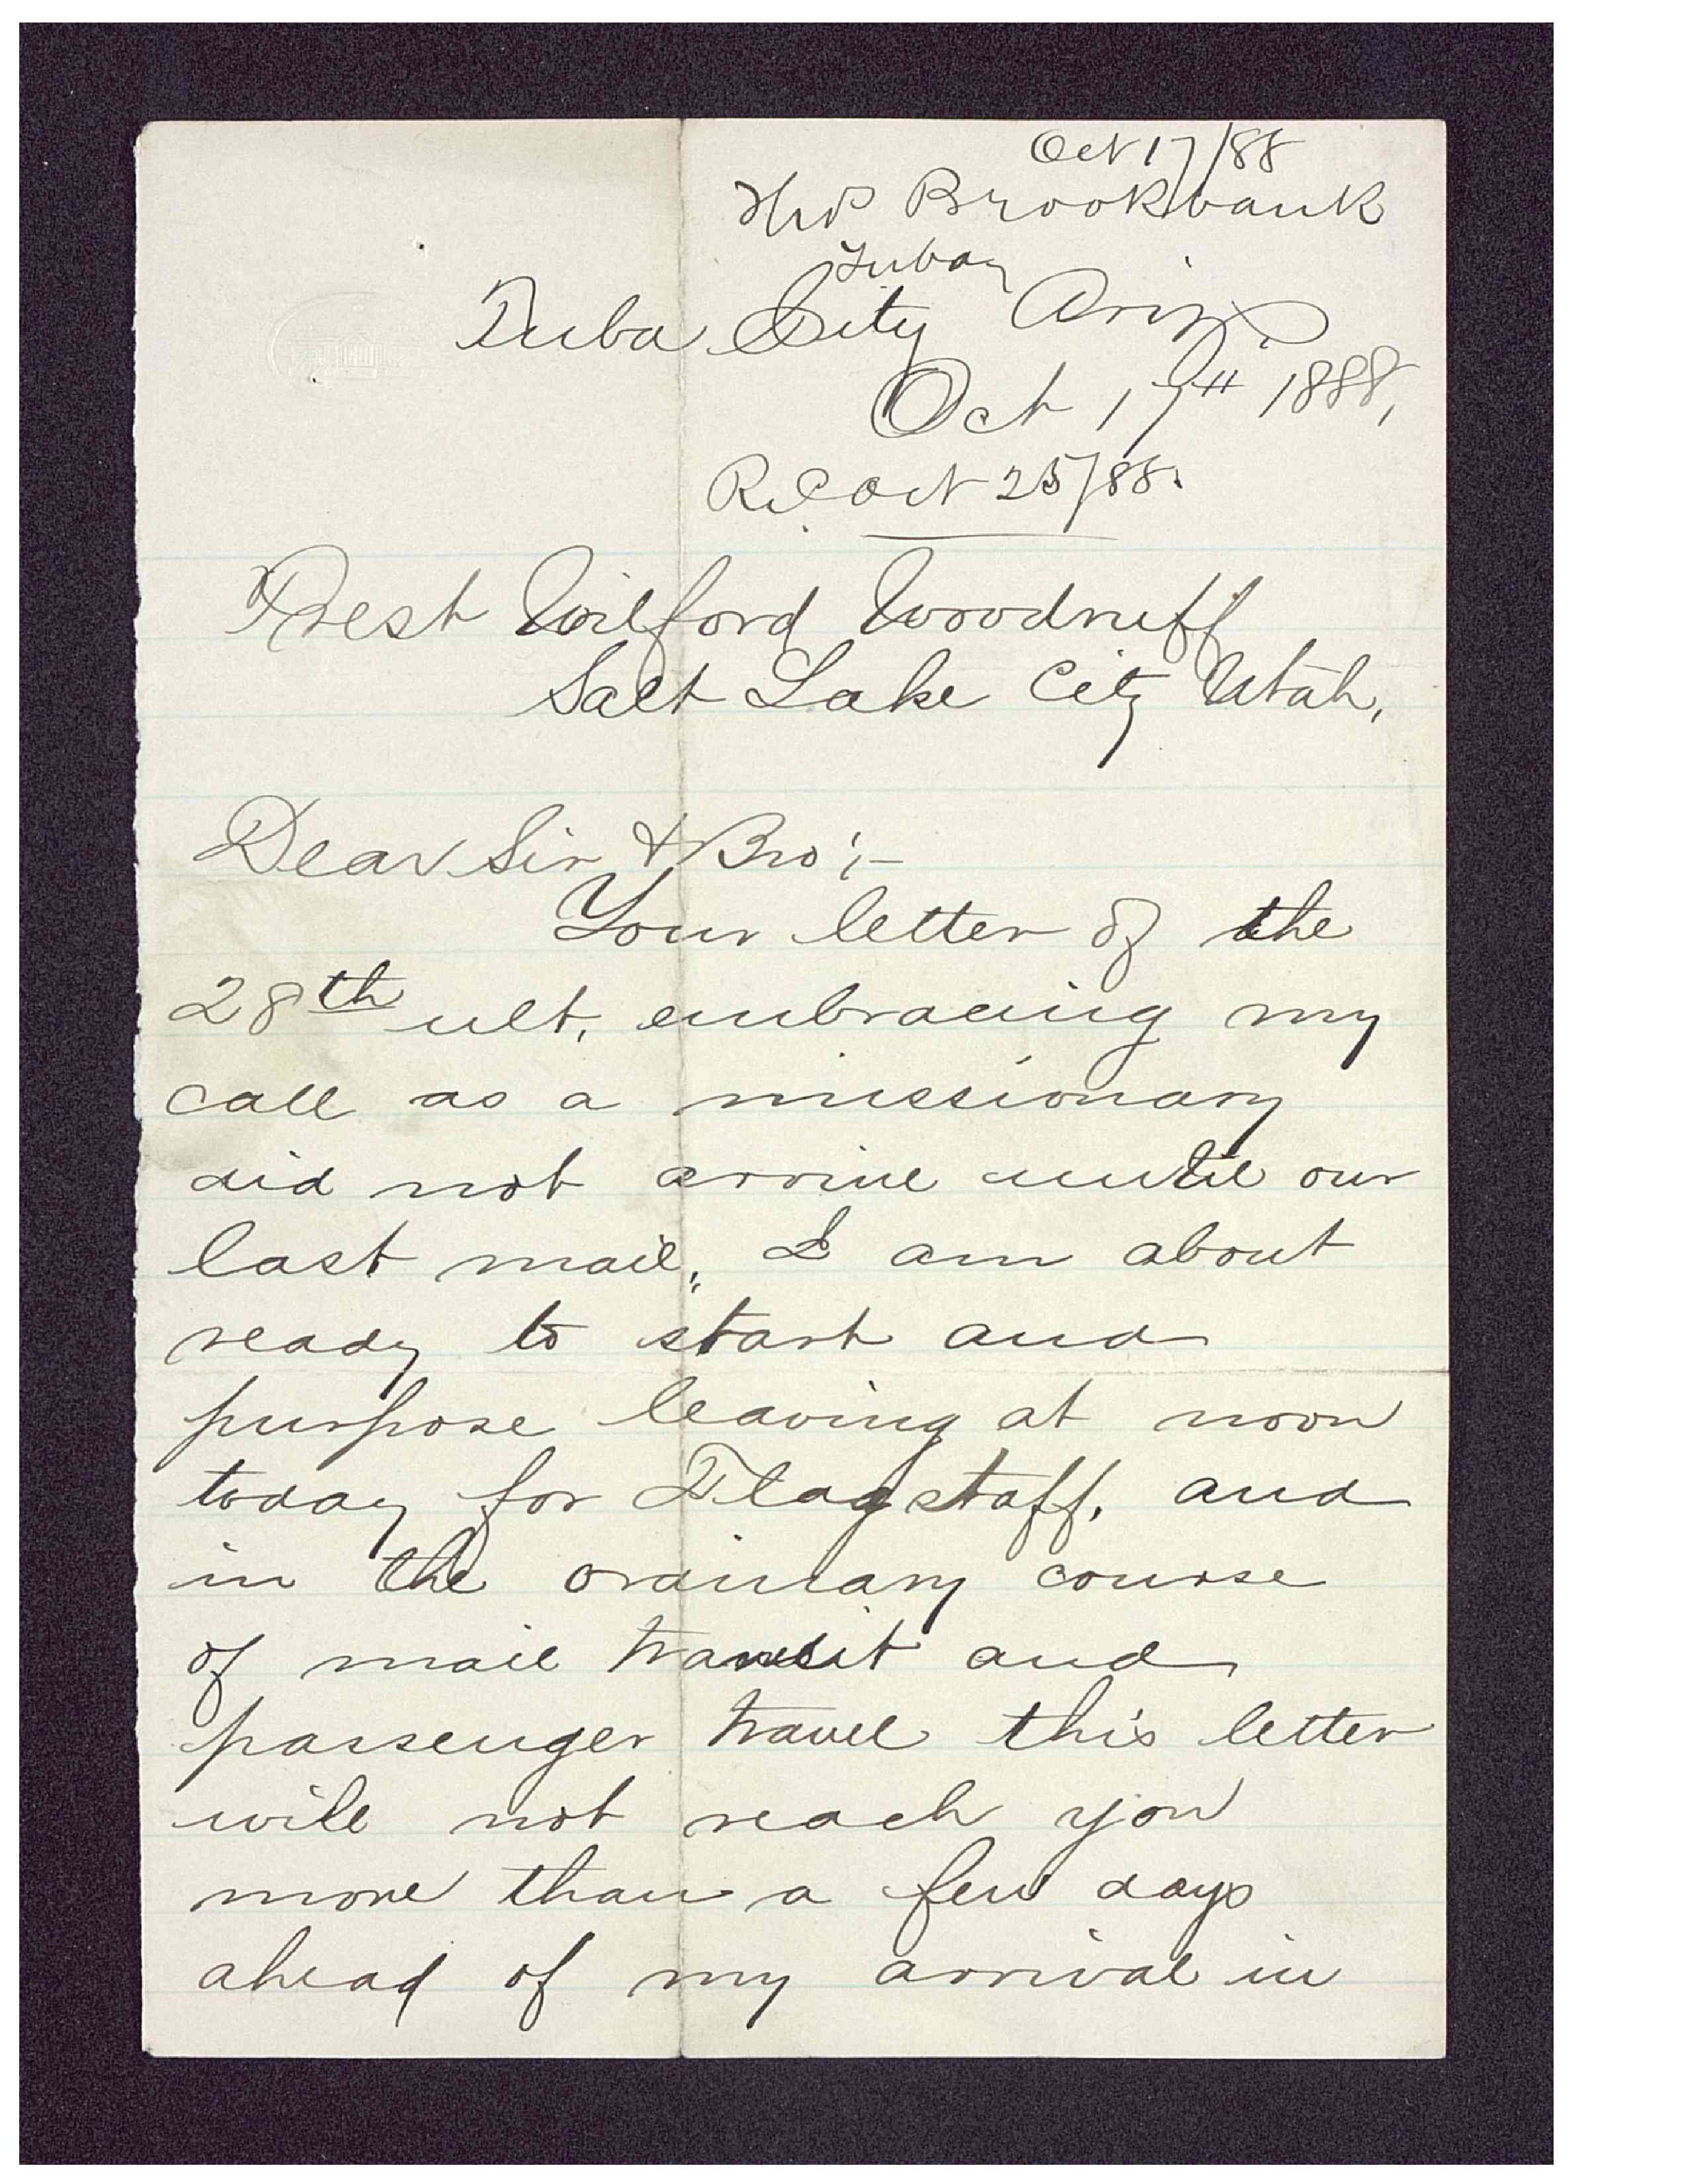 Oct 17/88
Brookbank
Tubay
Tuba City Ariz.
Oct 17th 1888,
Rec Oct 25/88.
Prest Wilford Woodruff
Salt Lake City Utah,
Dear Sir & Bro;—
Your letter of the
28th ult, embracing my
call as a missionary
did not arrive until our
last mail. I am about
ready to start and
purpose leaving at noon
today for Flagstaff, and
in the ordinary course
of mail transit and
passenger travel this letter
will not reach you
more than a few days
ahead of my arrival in